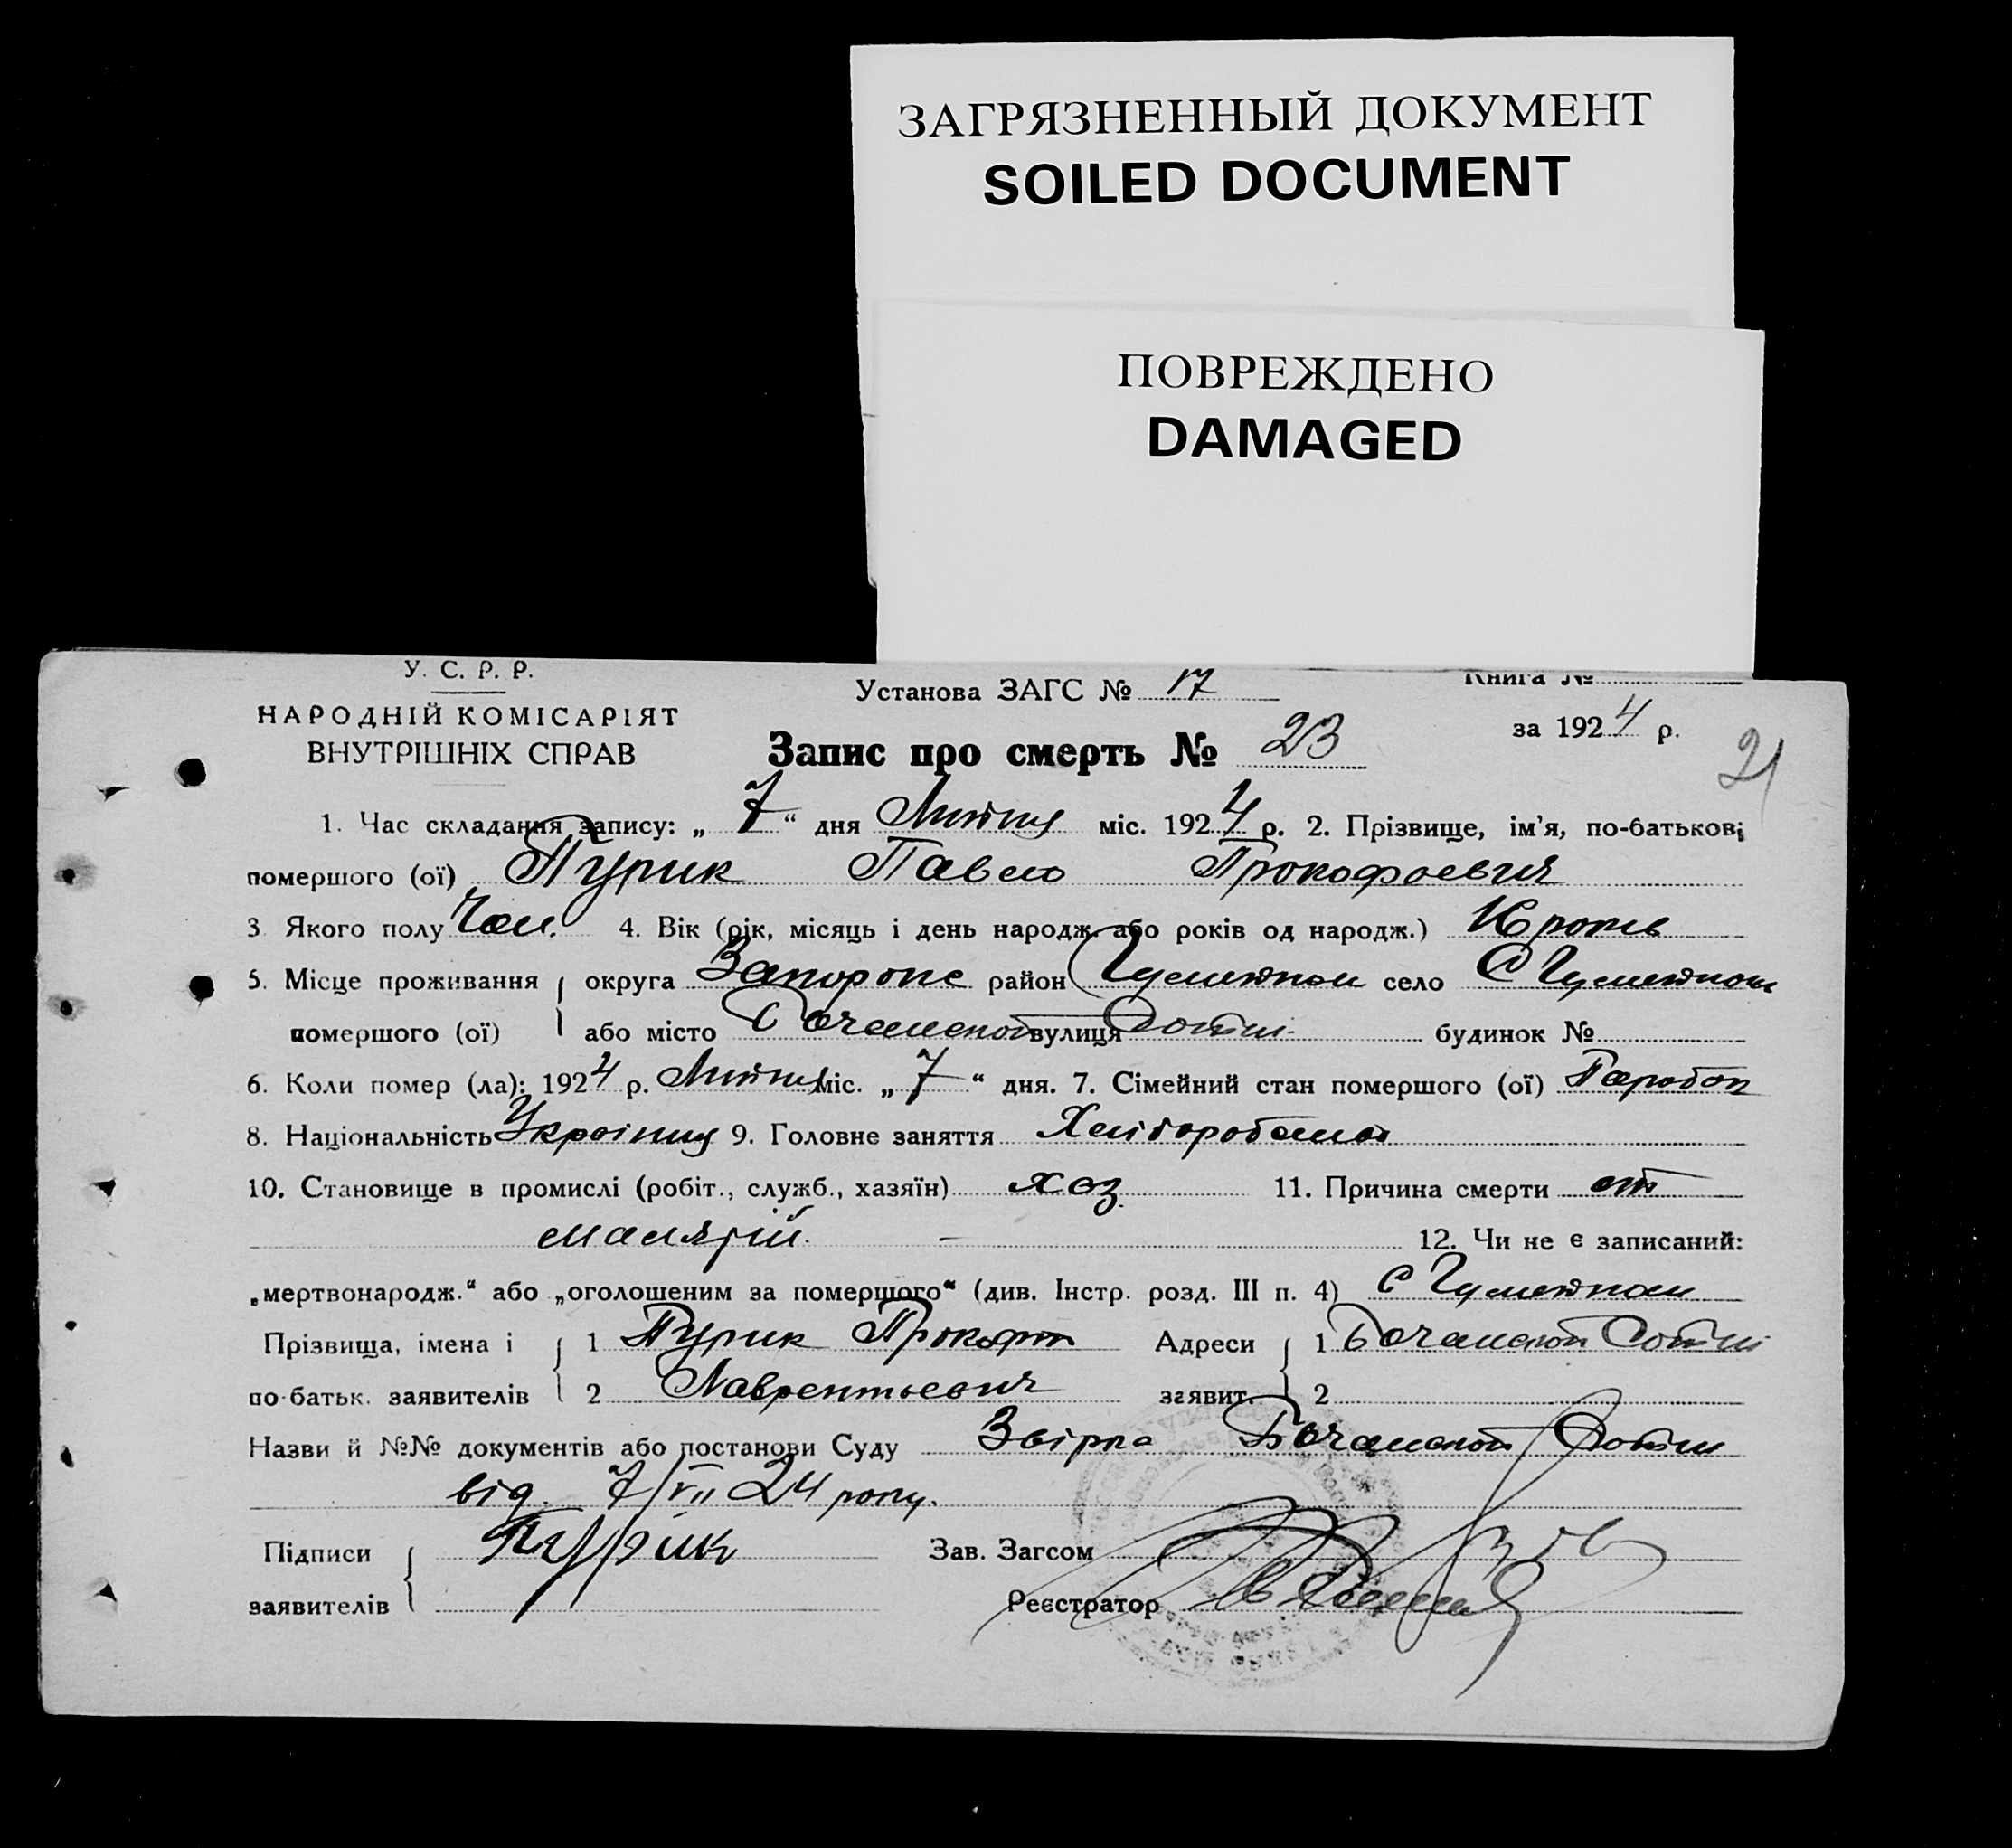 ЗАГРЯЗНЕННЫЙ ДОКУМЕНТ
SOILED DOCUMENT
ПОВРЕЖДЕНО
DAMAGED
У. С. Р. Р.
НАРОДНІЙ КОМІСАРІЯТ
ВНУТРІШНІХ СПРАВ
Установа ЗАГС № 17
Книга №
за 1924 р.
21
Запис про смерть № 23
1. Час складання запису: „ 7 “ дня Липня міс. 1924 р. 2. Прізвище, ім’я, по-батькові
помершого (ої) Пурик Павло Прокофьевич
3 Якого полу Чол. 4. Вік (рік, місяць і день народж. або років од народж.)
5. Місце проживання округа район село
помершого (ої) або місто вулиця будинок №
6. Коли помер (ла): 1924 р. Липня міс. „ 7 “ дня. 7. Сімейний стан помершого (ої) Парубок
8. Національність Украінец 9. Головне заняття
10. Становище в промислі (робіт., служб., хазяїн) хоз. 11. Причина смерти от
малярій. — 12. Чи не є записаний:
„мертвонародж.“ або „оголошеним за померщого“ (див. Інстр. розд. III п. 4)
Прізвища, імена і 1 Пурик Прокофт Адреси 1
по-батьк. заявителів 2 Лаврентьевич заявит. 2
Назви й №№ документів або постанови Суду
від 7/VII 24 року.
Підписи Пурік Зав. Загсом
заявителів Реєстратор